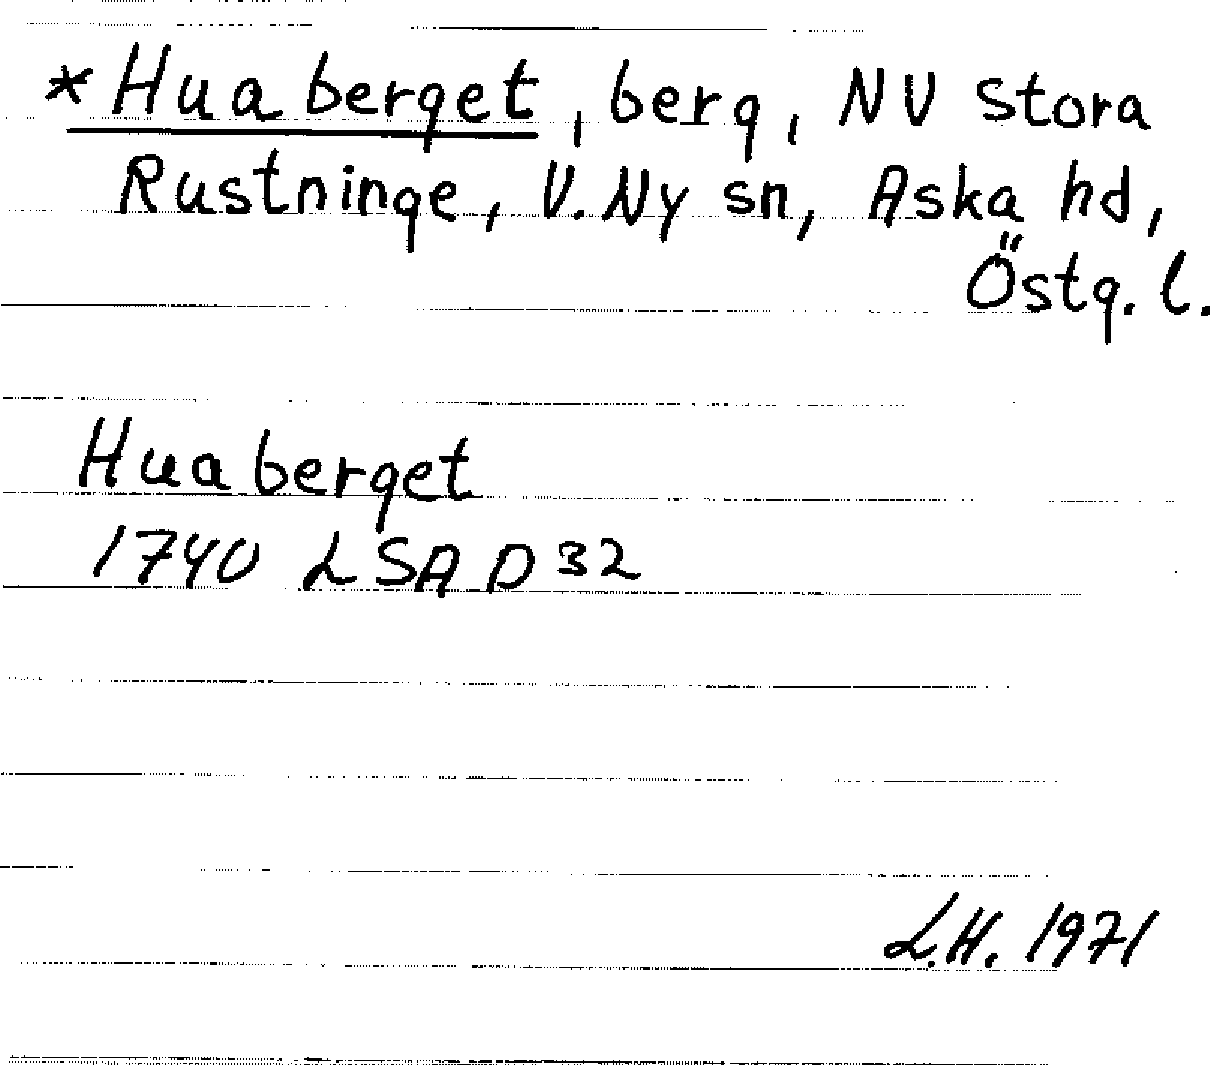 *Huaberget, berg, NV Stora
Rustninge, V. Ny sn, Aska hd,
Östg. l.
Huaberget
1740 LSA D32
L.H. 1971